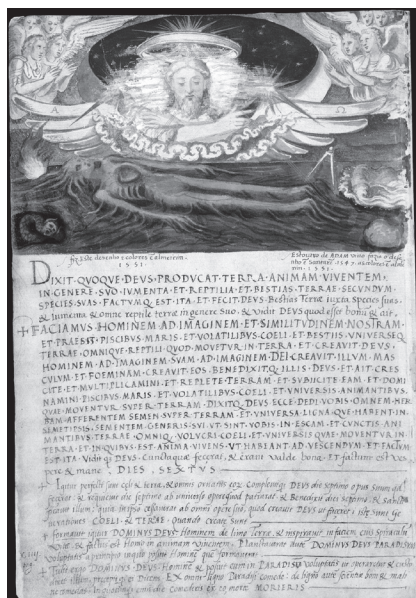 A Ω
fiz de desenho e colores Almeirim.
1551.
DIXIT QVOQVE DEVS: PRODVCAT TERRA ANIMAM VIVENTEM,
IN GENERE SVO IVMENTA ET REPTILIA ET BISTIAS TERRAE SECVNDVM
SPECIES SVAS FACTVMQ EST ITA ET FECIT DEVS Bestias Terrae iuxta species suas
& iumenta & omne reptile terrae in genere suo & vidit DEVS quod esset bonū & ait
+ FACIAMVS HOMINEM AD IMAGINEM ET SIMILITVDINEM NOSTRAM
ET PRAESIT PISCIBVS MARIS ET VOLATILIBVS COELI ET BISTIIS VNIVERSEQ
TERRAE OMNIQVE REPTILI QVOD MOVETVR IN TERRA ET CREAVIT DEVS
HOMINEM AD IMAGINEM SVAM AD IMAGINEM DEI CREAVIT ILLVM, MAS
CVLVM ET FOEMINAM CREAVIT EOS BENEDIXITQ ILLIS DEVS ET AIT CRES
CITE ET MVLTIPLICAMINI ET REPLETE TERRAM ET SVBIICITE EAM ET DOMI
NAMINI PISCIBVS MARIS ET VOLATILIBVS COELI ET VNIVERSIS ANIMANTIBVS
QVAE MOVENTVR SVPER TERRAM DIXITQ DEVS ECCE DEDI VOBIS OMNEM HER
BAM AFFERENTEM SEMEN SVPER TERRAM ET VNIVERSA LIGNA QVAE HABENT IN
SEMETIPSIS SEMENTEM GENERIS SVI VT SINT VOBIS IN ESCAM ET CVNCTIS ANI
MANTIBVS TERRAE OMNIQ VOLVCRI COELI ET VNIVERSIS QVAE MOVENTVR IN
TERRA ET IN QVIBVS EST ANIMA VIVENS VT HABEANT AD VESCENDVM ET FACTVM
EST ITA Vidit qȝ DEVS Cunctaque fecerat, & Erant valde bona Et factum est ves
pere & mane DIES SEXTVS
+ Igitur perfecti sunt celi & terra, & omnis ornatus eorȝ Complevitqȝ DEVS die septimo opus suum qd
fecerat: & requievit die septimo ab universo opere quod patrarat & Benedixit diei septimo & sancti
ficavit illum: quia in ipso cessaverat ab omni opere suo, quod creavit DEVS ut faceret: iste sunt Ge
nerationes COELI & TERRAE Quando create sunt
+ formavit igitur DOMINVS DEVS Hominem de limo Terrae, & inspiravit in faciem eius spiraculū
vite, & factus est Homo in animam viventem. Plantaverat autē DOMINVS DEVS PARADISVM
voluptatis a principio in quo posuit Hominē quē formaverat
+ Tulit ergo DOMINVS DEVS Hominē & posuit eum in PARADISO voluptatis ut operaretur & custo
diret illum, praecepitqȝ ei Dicens. EX omni ligno Paradisi comede: de ligno autē scientie boni & mali
ne comedas. In quacunqȝ comederis ex eo morte MORIERIS